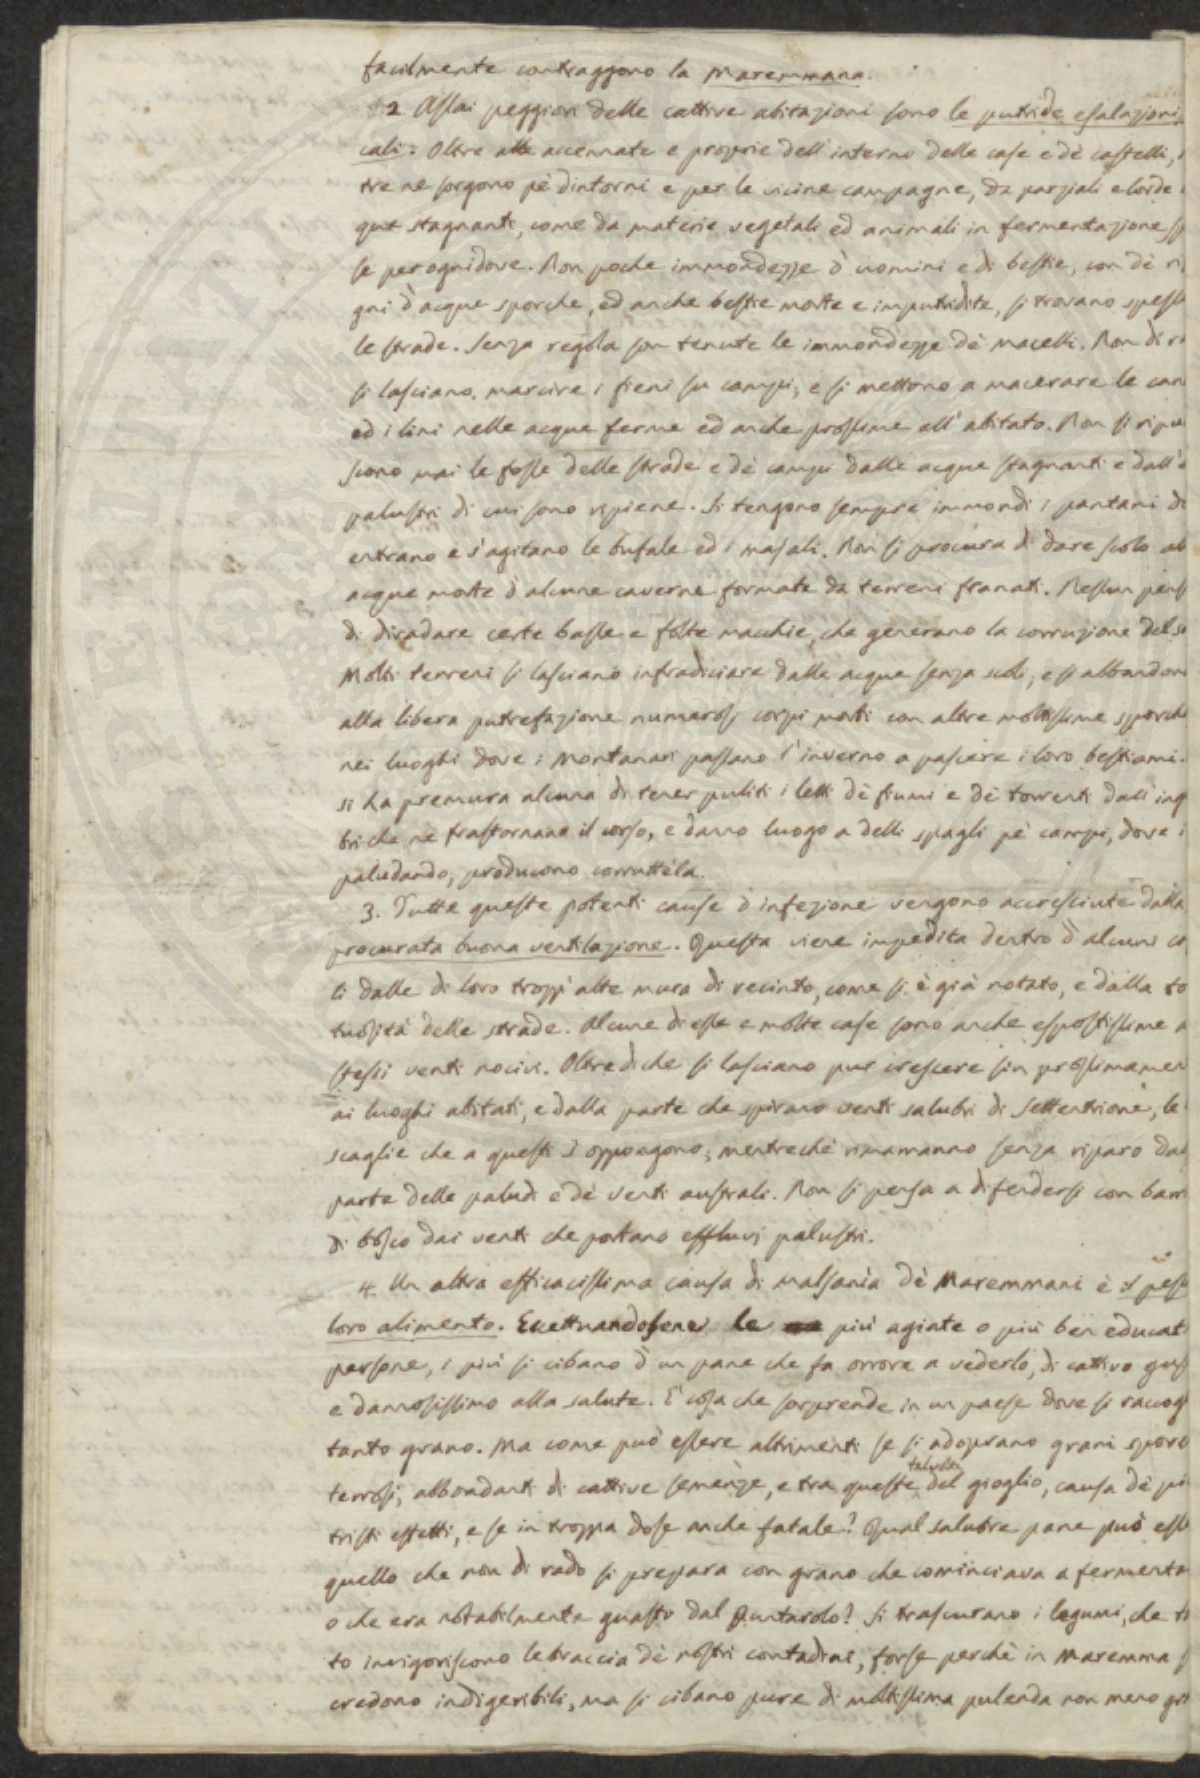 facilmente contraggono la Maremmana.
2 Assai peggiori delle cattive abitazioni sono le putride esalazioni
cali. Oltre alle accennate e proprie dell'interno delle case e dè castelli,
tre ne sorgono pè dintorni e per le vicine campagne, da parziali e lorde
que stagnanti, come da materie vegetali ed animali in fermentazione sp
se per ogni dove. Non poche immondezze d'uomini e di bestie, con dè ri
gni d'acque sporche, ed anche bestie morte e imputridite, si trovano spess
le strade. Senza regola son tenute le immondezze dè macelli. Non di r
si lasciano marcire i fieni su campi, e si mettono a macerare le can
ed i lini nelle acque ferme ed anche prossime all'abitato. Non si ripu
scono mai le fosse delle strade e dè campi dalle acque stagnanti e dall'
palustri di cui sono ripiene. Si tengono sempre immondi i pantani d
entrano e s'agitano le bufale ed i majali. Non si procura di dare scolo al
acque morte d'alcune caverne formate da terreni franati. Nessun pens
di diradare certe basse e folte macchie, che generano la corruzione del s
Molti terreni si lasciano infradiciare dalle acque senza scoli, e si abbandon
alla libera putrefazione numerosi corpi morti con altre moltissime sporch
nei luoghi dove i Montanari passano l'inverno a pascere i loro bestiami.
si ha premura alcuna di tener puliti i letti dè fiumi e dè torrenti dall'ing
bri che ne frastornano il corso, e danno luogo a delli spagli pè campi, dove i
paludando, producono corruttèla.
3. Tutte queste potenti cause d'infezione vengono accresciute dalla
procurata buona ventilazione. Questa viene impedita dentro d'alcuni c
li dalle di loro tropp'alte mura di recinto, come si è già notato, e dalla to
tuosità delle strade. Alcune di esse e molte case sono anche espostissime a
stessi venti nocivi. Oltre di che si lasciano pur crescere sin prossimamen
ai luoghi abitati, e dalla parte che spirano venti salubri di Settentrione, le
scaglie che a questi s'oppongono; mentrechè rimarranno senza riparo dal
parte delle paludi e dè venti australi. Non si pensa a difendersi con barr
di bosco dai venti che portano effluvj palustri.
4. Un altra efficacissima causa di malsanìa dè Maremmani è il pess
loro alimento. Eccettuandosene le più agiate o più ben educat
persone, i più si cibano d'un pane che fa orrore a vederlo, di cattivo gus
e dannosissimo alla salute. E' cosa che sorprende in un paese dove si raccog
tanto grano. Ma come può essere altrimenti se si adoprano grani sporc
terrosi, abbondanti di cattive semenze, e tra queste talvolta del gioglio, causa dè pi
tristi effetti, e se in troppa dose anche fatale? Qual salubre pane può ess
quello che non di rado si prepara con grano che cominciava a fermenta
o che era notabilmente guasto dal Puntarolo? Si trascurano i legumi, che t
to invigoriscono le braccia dè nostri contadini, forse perchè in Maremma s
credono indigeribili, ma si cibano pure di moltissima pulenda non meno gr